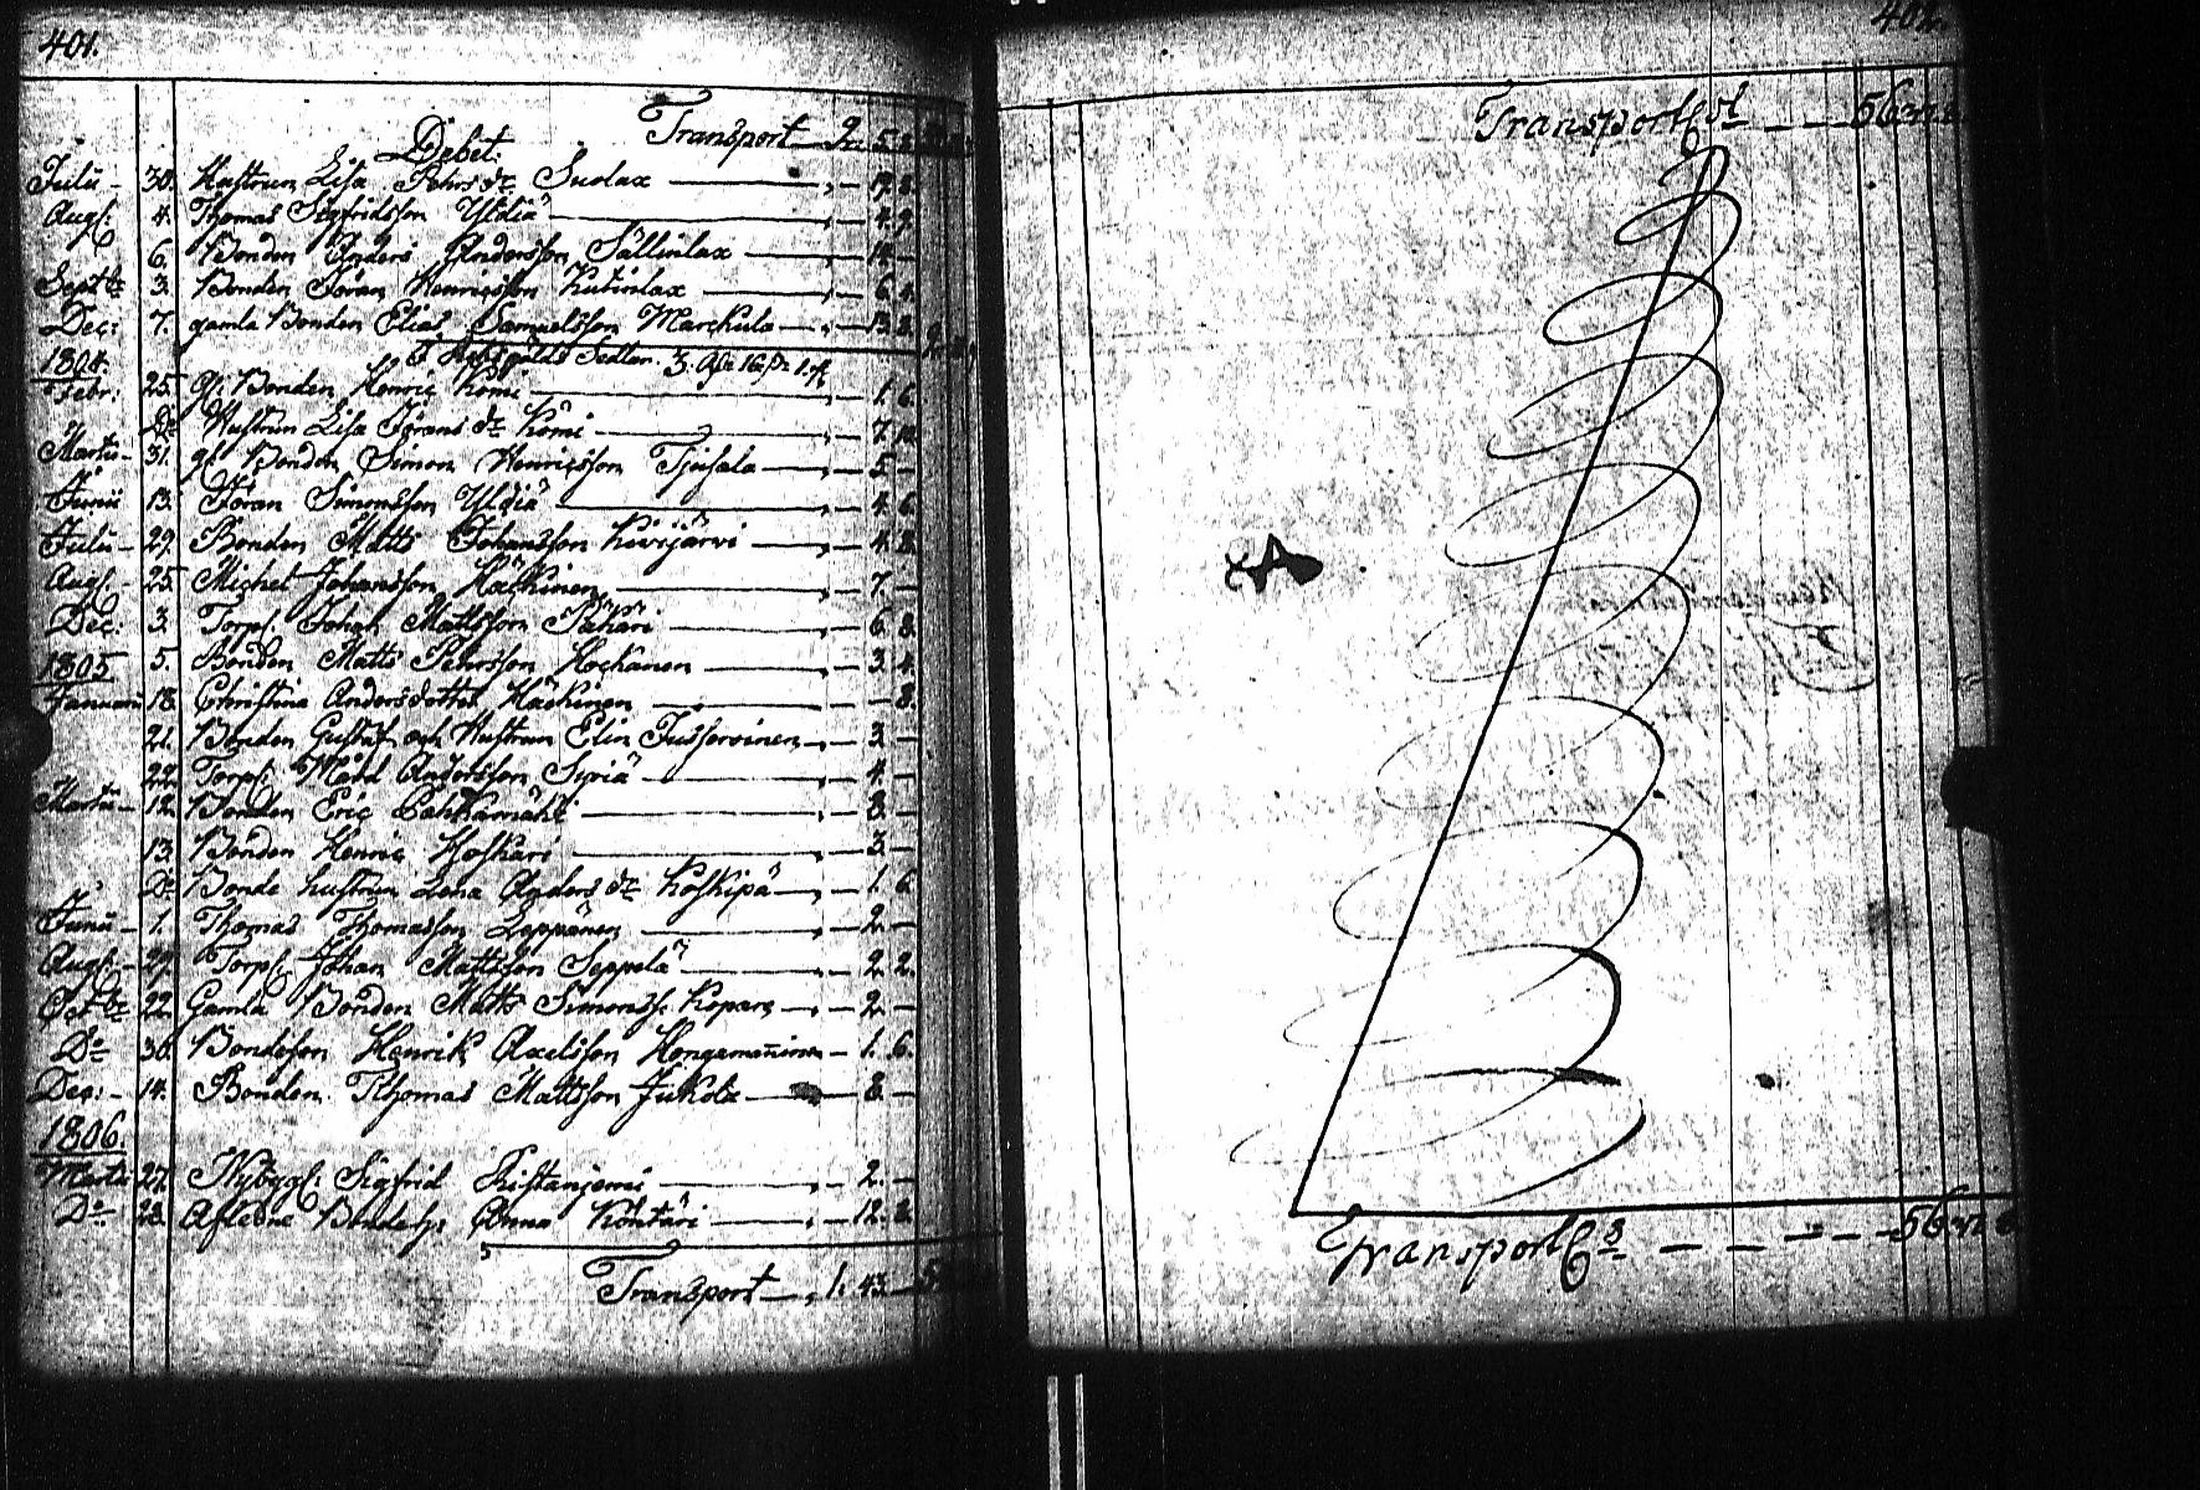 401.
Transport 2. 5. 8.
Debet.
Julii 30. Hustrun Lisa Pehrs dr Suolax 19. 8.
Augs: 4. Thomas Sigfridsson Yldiä 4. 9.
6. Bonden Anders Andersson Sällinlax 14.
Septbr 3. Bonden Jöran Henricsson Kutinlax 6. 4.
Dec: 7. gamla Bonden Elias Samuelsson Marckula 13. 8.
Riksgälds Sedlar. 3. 16 1.
1804.
Febr: 25. gl. Bonden Henric Kömi 1. 6.
Do Hustrun Lisa Jörans dr Kömi 7. 10.
Martii 31. gl. Bonden Simon Henricsson Tjusala 5.
Junii 13. Jöran Simonsson Yldiä 4. 6.
Julii 29. Bonden Matts Johansson Kivijärvi 4. 8.
Augs. 25. Michel Johansson Häckinen 7.
Dec: 3. Torps. Johan Mattsson Pähäri 6. 8.
5. Bonden Matts Pehrsson Hockanen 3. 4.
1805
Januarii 18. Christina Andersdotter Häckinen 8.
21. Bonden Gustaf och Hustrun Elin Jussorvinen 3.
22. Torps. Mård Andersson Syriä 4.
Martii 12. Bonden Eric 8.
13. Bonden Henric Koskari 3.
Do Bonde hustrun Lena Anders dr Koskipä 1. 6.
Junii 1. Thomas Thomasson Leppänen 2.
Augs. 29. Torps. Johan Mattsson Seppelä 2. 2.
Octbr 22. Gamla Bonden Matts Simonss. Kopare 2.
Do 30. Bondeson Henrik Axelsson Hongamäninen 1. 6.
Dec: 14. Bonden Thomas Mattsson Jukola 8.
1806.
Martii 27. Nybygg. Sigfrid Ristaniemi 2.
Do 28. Afledne Bondehs. Anna Köntäri 12. 8.
Transport 1. 43.
402.
Transport Cst 56
Transport Cs 56